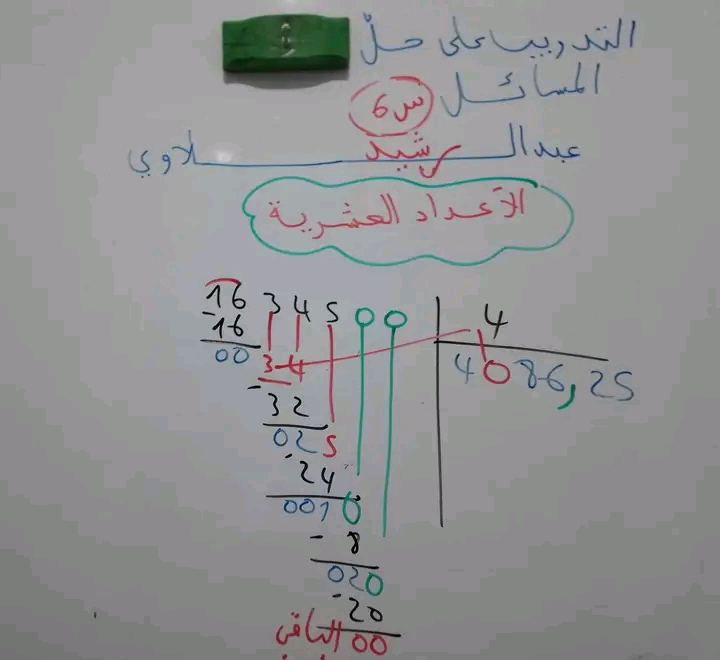 التدريب على حلّ
المسائل س6
عبدالرشيد سلاوي
الأعداد العشرية
16 3 4 5 0 0 | 4
-16
00 3 4 | 4 0 8 6, 2 5
-32
02 5
-24
001 0
-8
020
-20
الباقي 00